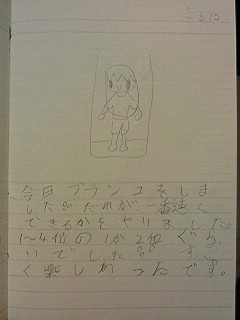 3.15
今日ブランコをしま
した。だれが、一番速く
できるかをやりました。
1〜4位の1か2位ぐら
いでした。す、ご
く楽しかったです。